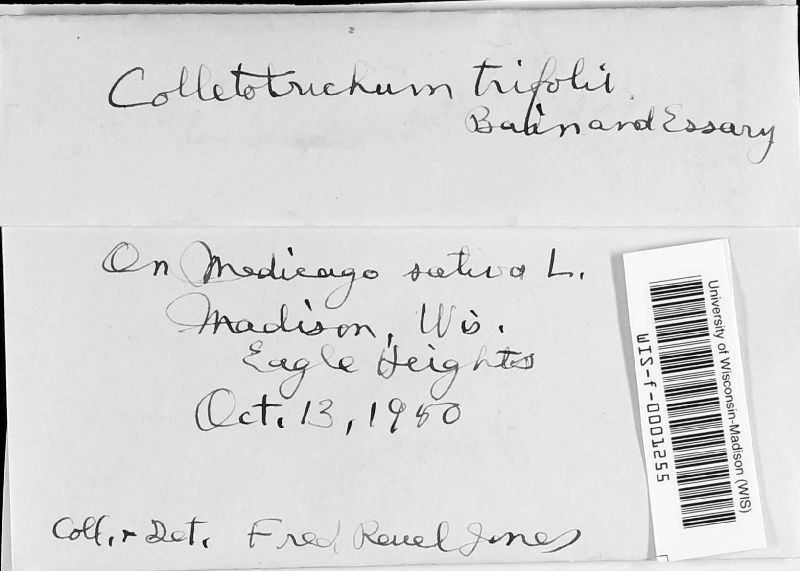 Colletotrichum trifolii
Bain and Essary
On Medicago sativa L.
Madison, Wis.
Eagle Heights
Oct. 13, 1980
Coll. & Det. Fred Reuel Jones
University of Wisconsin-Madison (WIS)
WIS-f-0001255